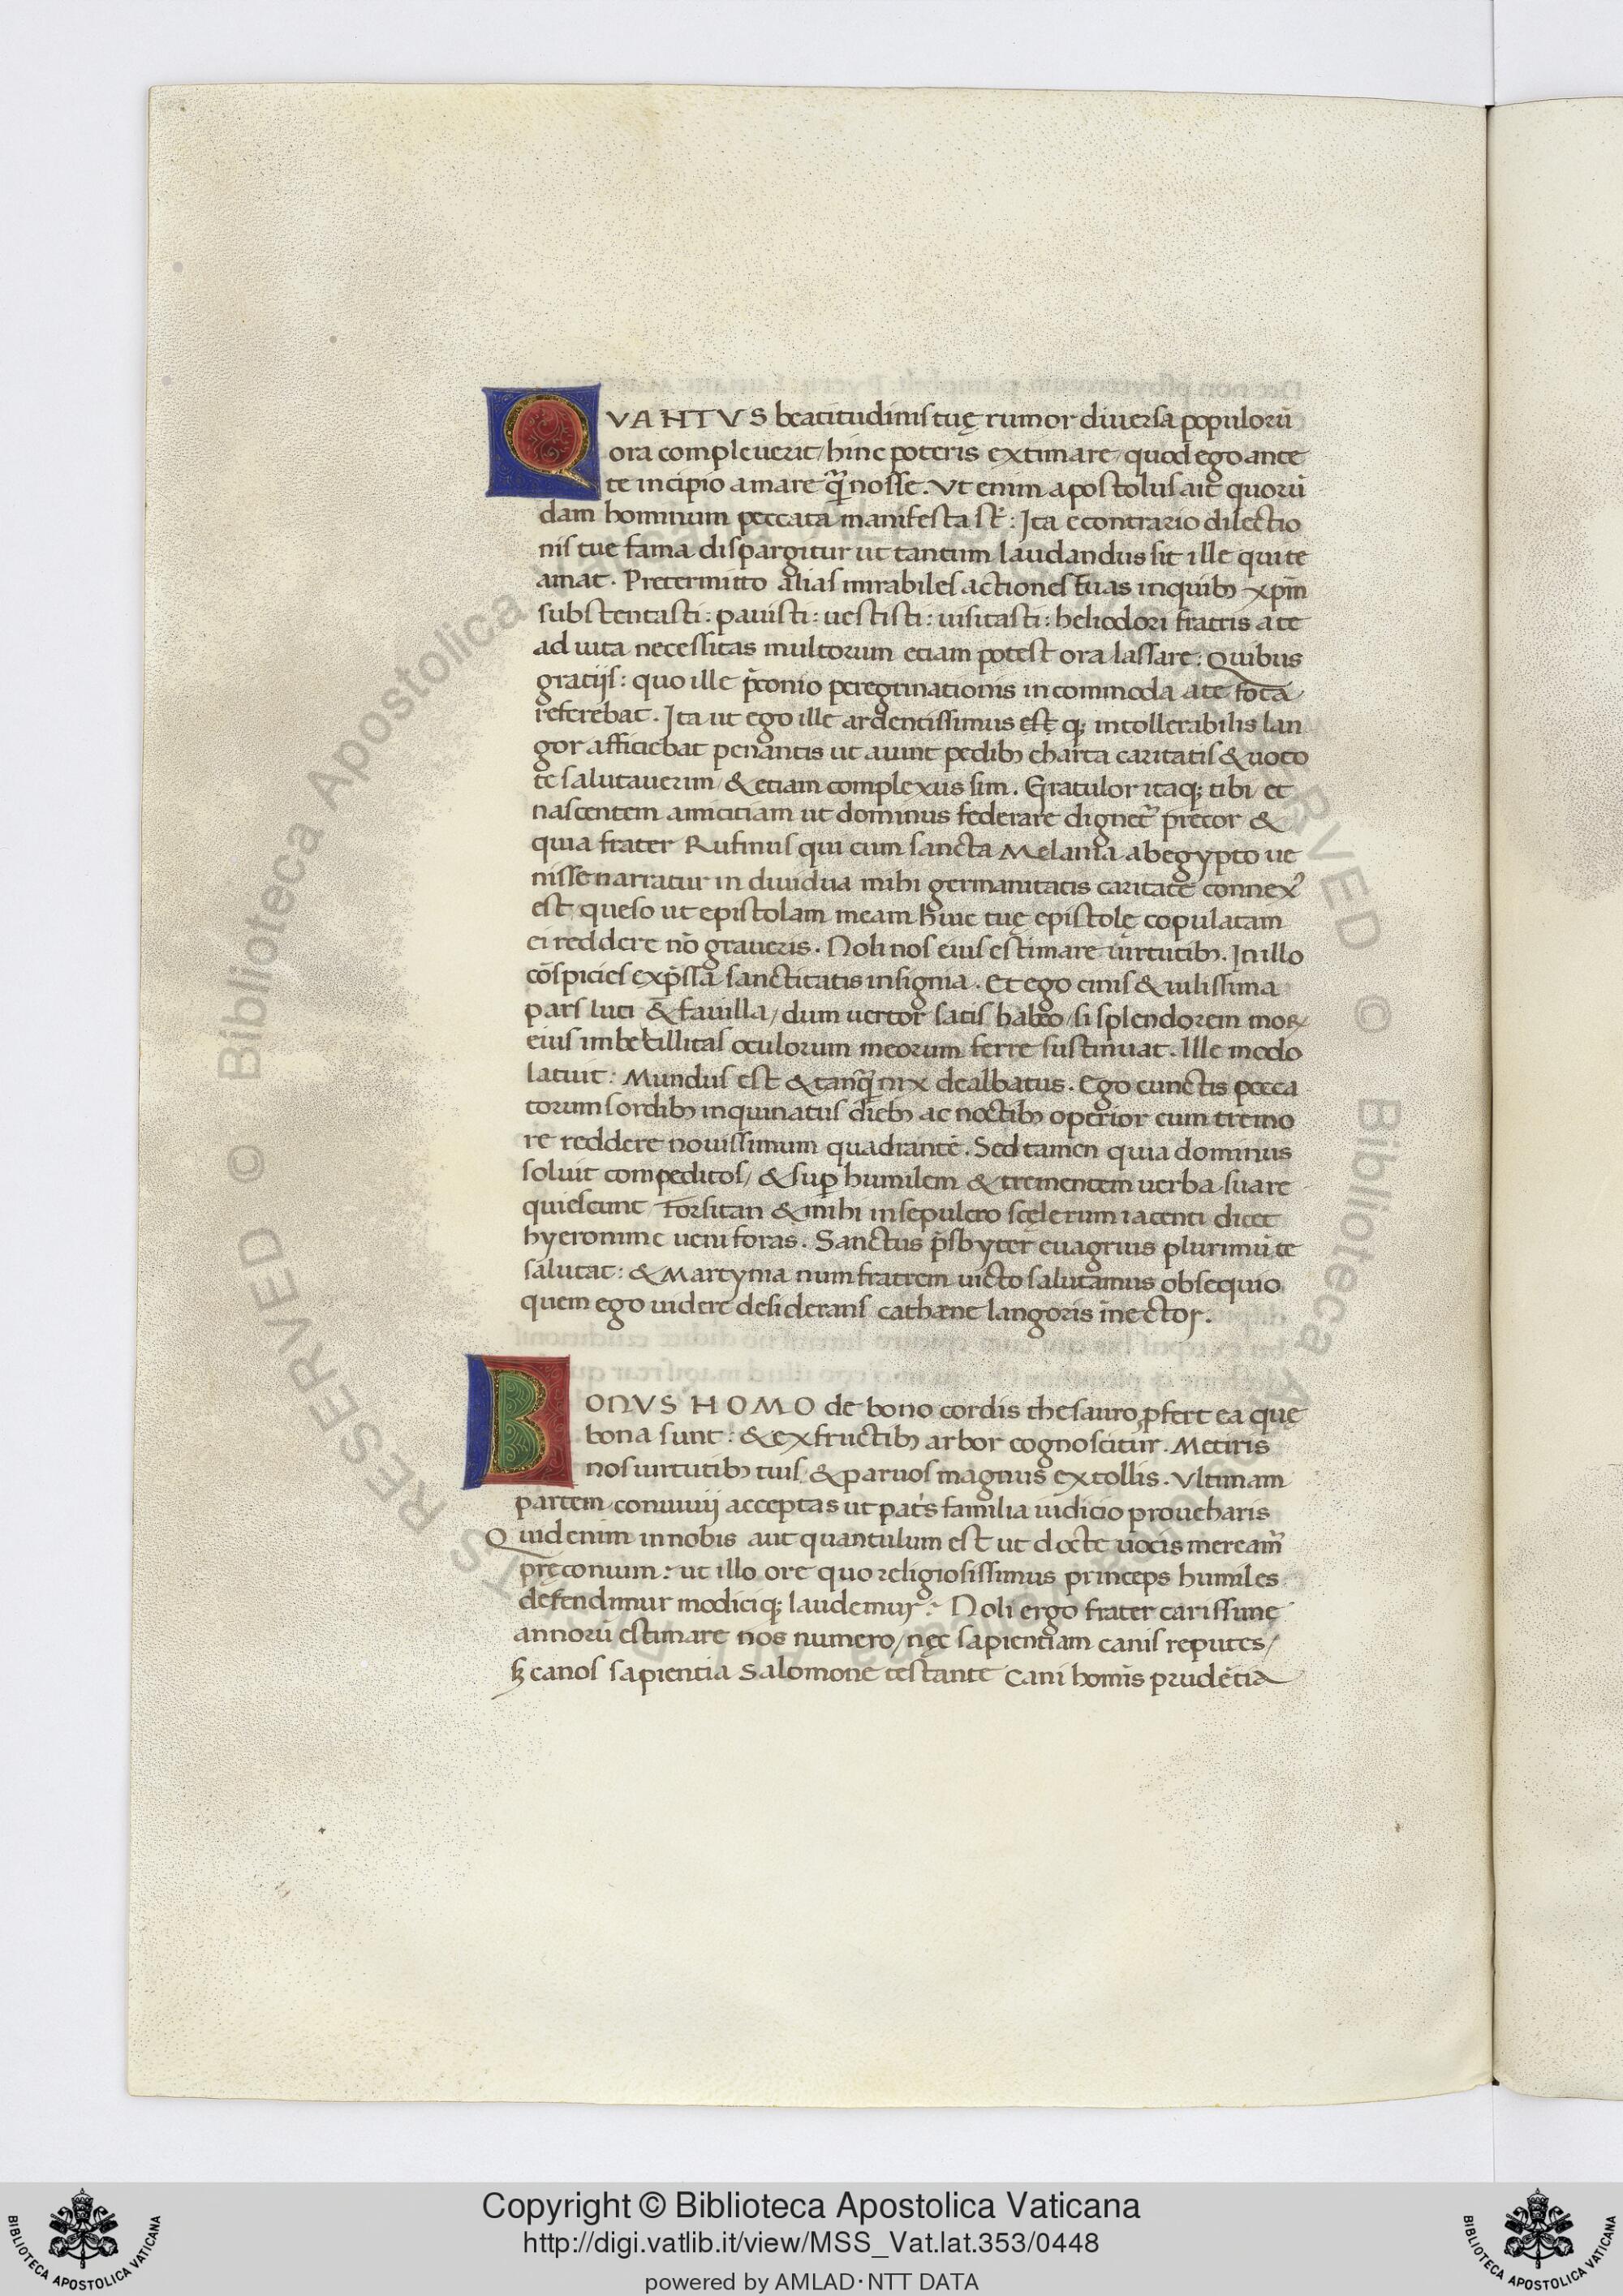 QVANTVS beatitudinis tuę rumor diuersa populorū
ora compleuerit / hinc poteris extimare / quod ego ante
te incipio amare q̄ nosse. Vt enim apostolus ait quorū
dam hominum peccata manifesta st̄ : Ita econtrario dilectio
nis tue fama dispargitur ut tantum laudandus sit ille qui te
amat. Pretermitto alias mirabiles actiones tuas in quib; xpm̄
substentasti : pauisti : uestisti : uisitasti : heliodori fratris a te
ad iuta necessitas multorum etiam potest ora lassare : Quibus
gratijs : quo ille p̄conio peregrinationis incommoda a te fota
referebat. Ita ut ego ille ardentissimus est q; intollerabilis lan
gor afficiebat penantis ut aiunt pedib; charta caritatis & uoto
te salutauerim / & etiam complexus sim. Gratulor itaq; tibi et
nascentem amicitiam ut dominus federare dignet᷑ precor &
quia frater Rufinus qui cum sancta Melania ab egypto ue
nisse narratur in diuidua mihi germanitatis caritate connex᾽
est queso ut epistolam meam huic tuę epistolę copulatam
ei reddere nō graueris. Noli nos eius estimare uirtutib;. In illo
cōspicies exp̄ssa sanctitatis insignia. Et ego cinis & uilissima
pars luti & fauilla / dum uertor satis habeo / si splendorem moꝝ
eius imbecillitas oculorum meorum ferre sustinuat. Ille modo
lauit : Mundus est & tanq̄ nix dealbatus. Ego cunctis pecca
torum sordib; inquinatus dieb; ac noctib; operior cum tremo
re reddere nouissimum quadrantē. Sed tamen quia dominus
soluit compeditos / & suꝑ humilem & trementem uerba sua re
quiescunt Forsitan & mihi in sepulcro scęlerum iacenti dicet
hyeronime ueni foras. Sanctus p̄sbyter euagrius plurimū te
salutat : & Martynia num fratrem uicto salutamus obsequio
quem ego uidere desiderans cathene langoris īnector.
BONVS HOMO de bono cordis thesauro ꝓfert ea quę
bona sunt : & ex fructib; arbor cognoscitur. Metiris
nos uirtutib; tuis & paruos magnus extollis. Vltimam
partem conuiuij acceptas ut pat̄s familia iudicio proueharis
Quid enim in nobis aut quantulum est ut docte uocis meream᷑
pręconium : ut illo ore quo religiosissimus princeps humiles
defendimur modiciq; laudemur. Noli ergo frater carissimę
annorū estimare nos numero / nęc sapientiam canis reputes /
sꝫ canos sapientia Salomone testante Cani homīs prudētia
Copyright © Biblioteca Apostolica Vaticana
http://digi.vatlib.it/view/MSS_Vat.lat.353/0448
powered by AMLAD·NTT DATA
BIBLIOTECA APOSTOLICA VATICANA
BIBLIOTECA APOSTOLICA VATICANA